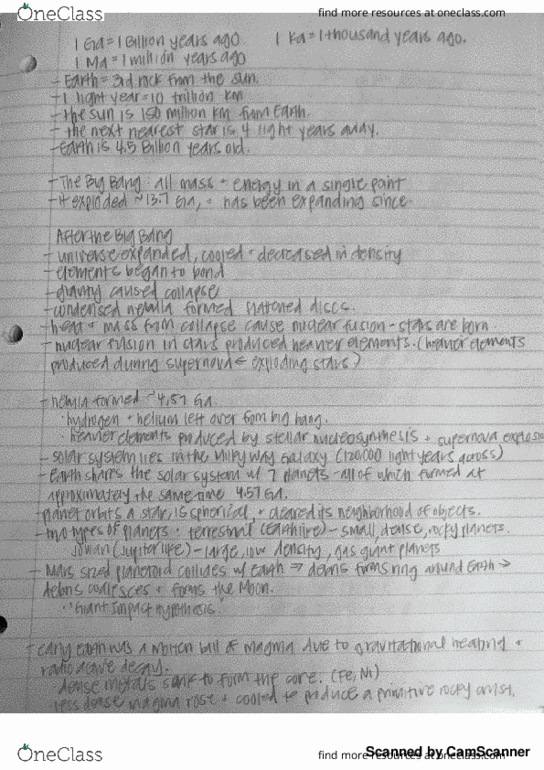 OneClass
find more resources at oneclass.com
1 Ga = 1 Billion years ago    1 Ka = 1 thousand years ago.
1 Ma = 1 million years ago
- Earth = 3rd rock from the sun.
- 1 light year = 10 trillion km
- the sun is 150 million km from Earth.
- the next nearest star is 4 light years away.
- Earth is 4.5 Billion years old.
- The Big Bang: all mass + energy in a single point
- it exploded ~13.7 Ga, + has been expanding since.
After the Big Bang
- universe expanded, cooled + decreased in density
- elements began to bond
- gravity caused collapse
- condensed nebula formed flattened discs.
- heat + mass from collapse cause nuclear fusion - stars are born.
- nuclear fusion in stars produced heavier elements. (heavier elements
produced during supernova ← exploding stars)
- nebula formed ~4.57 Ga.
· hydrogen + helium left over from big bang.
· heavier elements produced by stellar nucleosynthesis + supernova explosio
- solar system lies in the Milky Way Galaxy (120,000 light years across)
- Earth shares the solar system w/ 7 planets - all of which formed at
approximately the same time 4.57 Ga.
- planet orbits a star, is spherical, + cleared its neighborhood of objects.
- two types of planets · terrestrial (earth like) - small, dense, rocky planets.
Jovian (jupiter like) - large, low density, gas giant planets
- Mars sized planetoid collides w/ earth → debris forms ring around Earth →
debris coalesces + forms the Moon.
· "Giant Impact Hypothesis"
- early earth was a molten ball of magma due to gravitational heating +
radioactive decay.
dense metals sank to form the core. (Fe, Ni)
less dense magma rose + cooled to produce a primitive rocky crust.
OneClass
find more resources at oneclass.com
Scanned by CamScanner